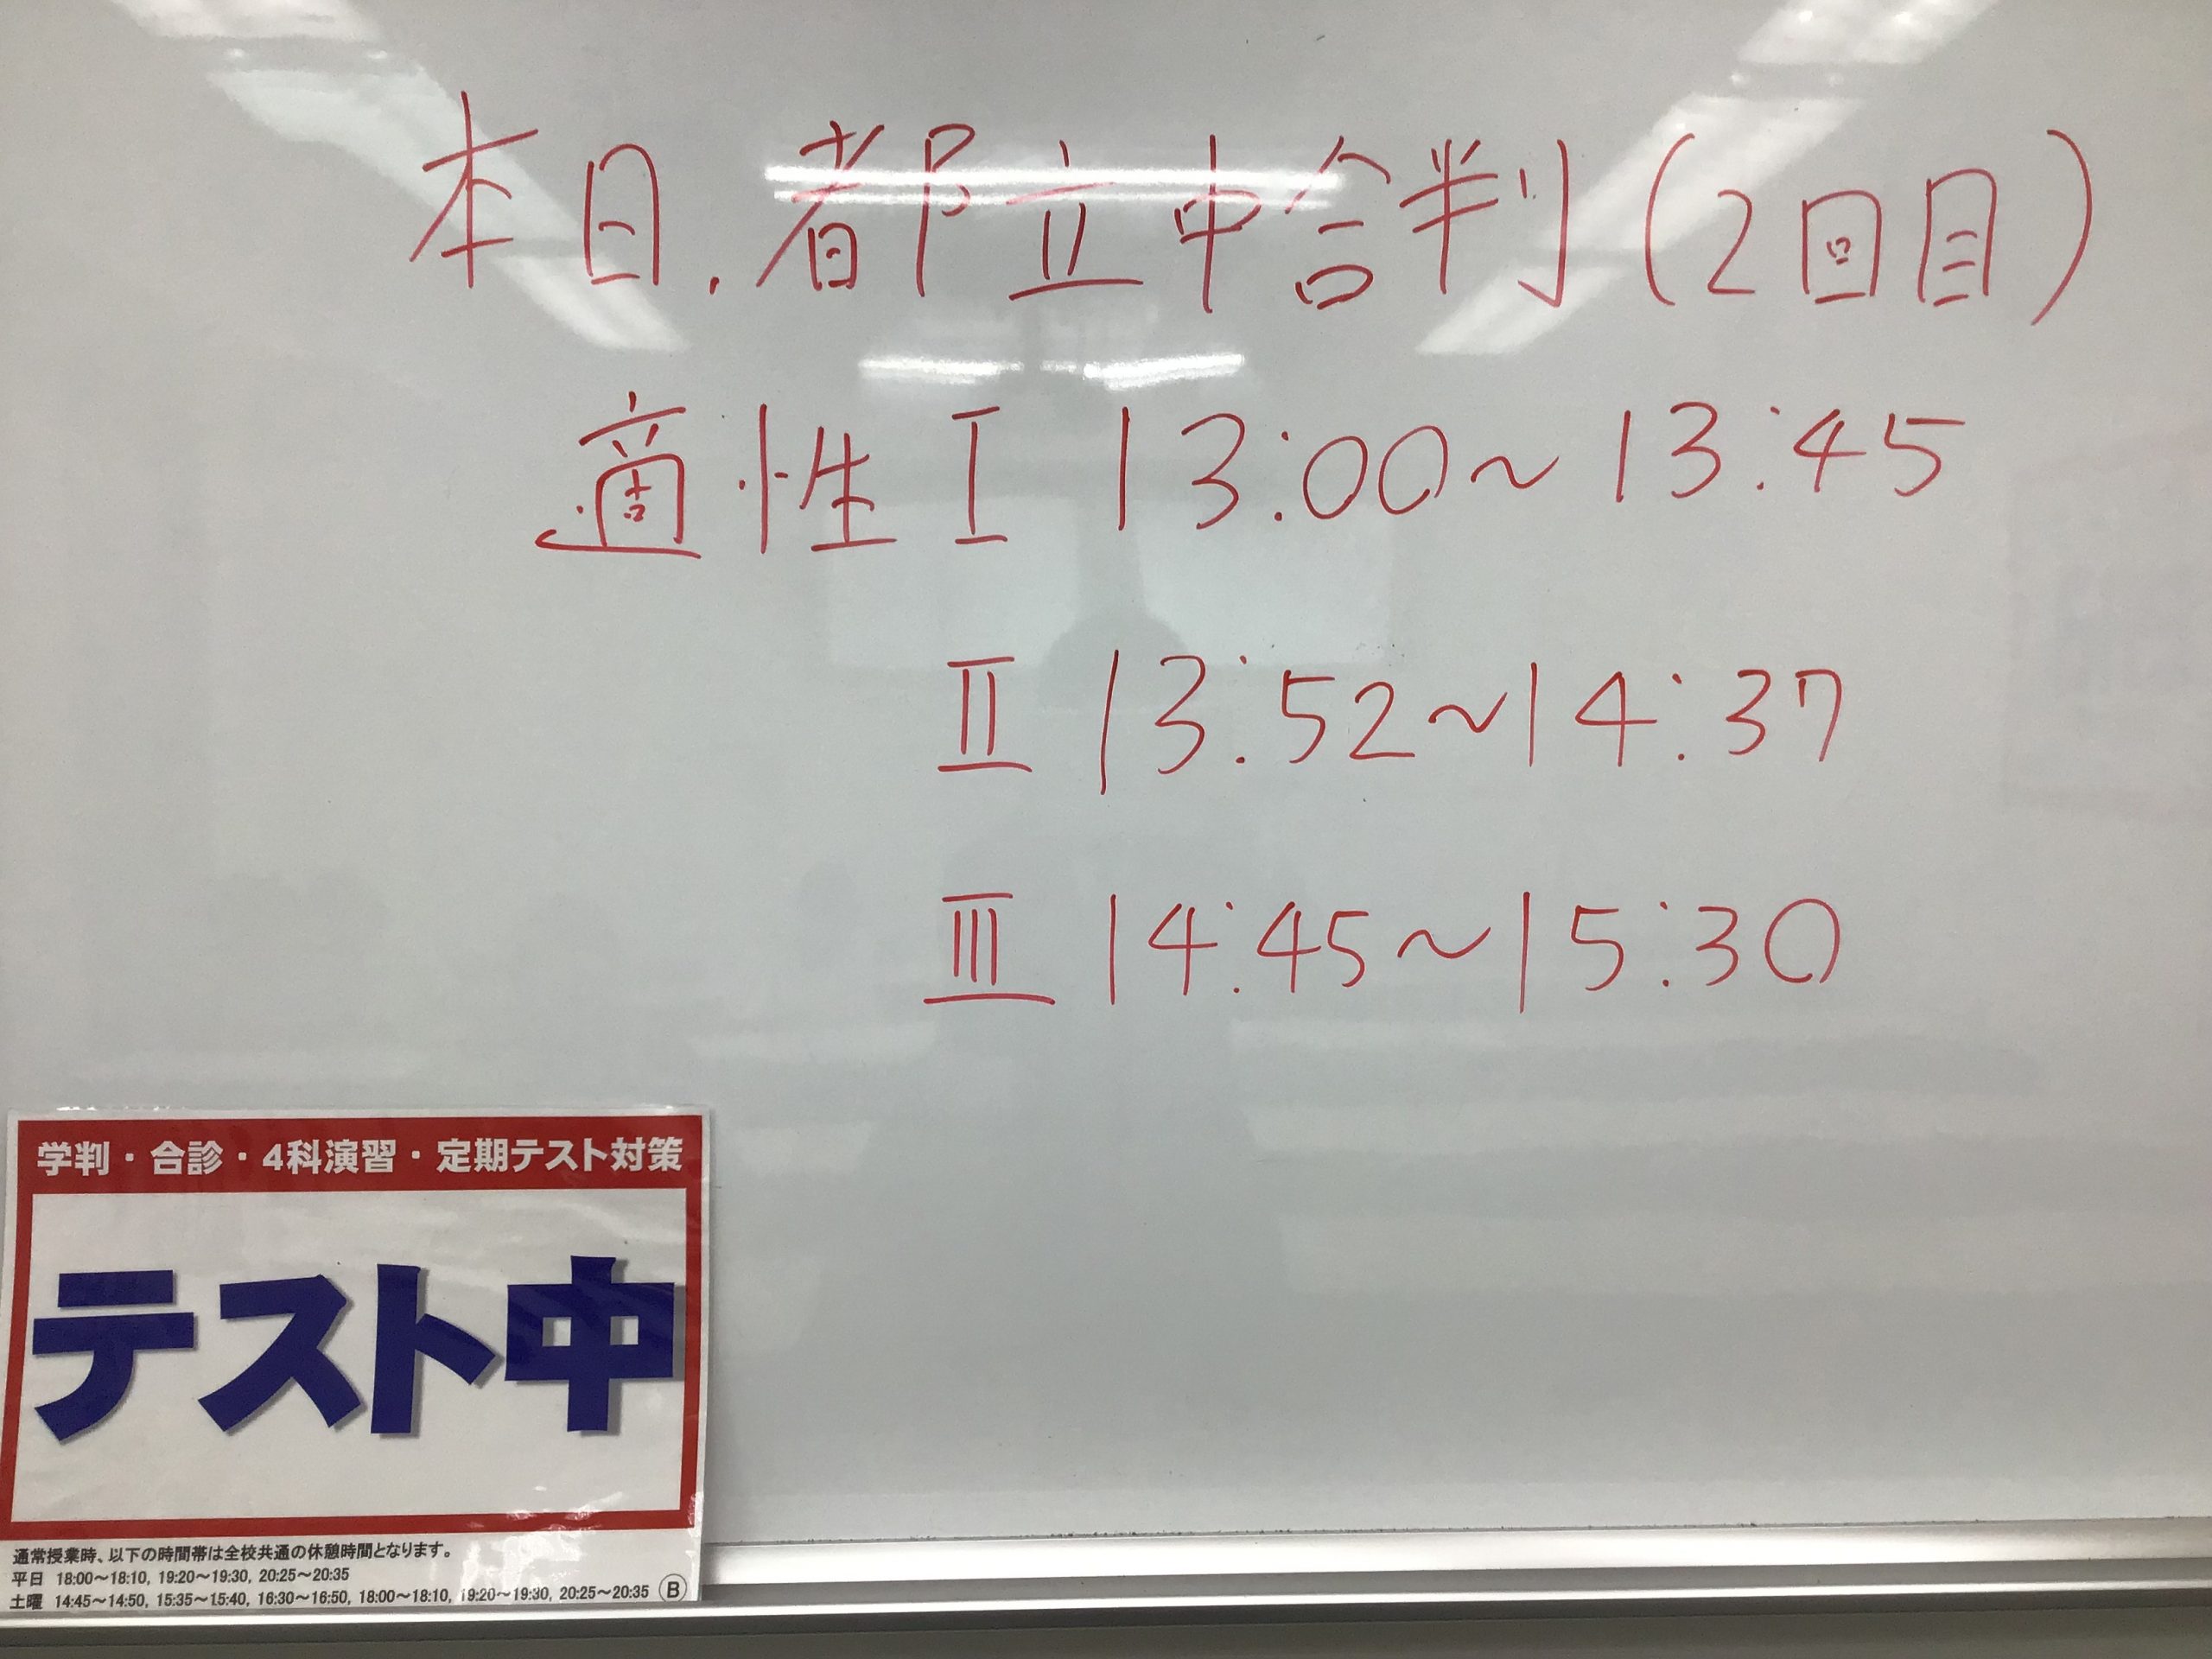 本日、都立中合判(2回目)
適性Ⅰ 13:00～13:45
Ⅱ 13:52～14:37
Ⅲ 14:45～15:30
学判・合診・4科演習・定期テスト対策
テスト中
通常授業時、以下の時間帯は全校共通の休憩時間となります。
平日 18:00～18:10, 19:20～19:30, 20:25～20:35
土曜 14:45～14:50, 15:35～15:40, 16:30～16:50, 18:00～18:10, 19:20～19:30, 20:25～20:35 Ⓑ